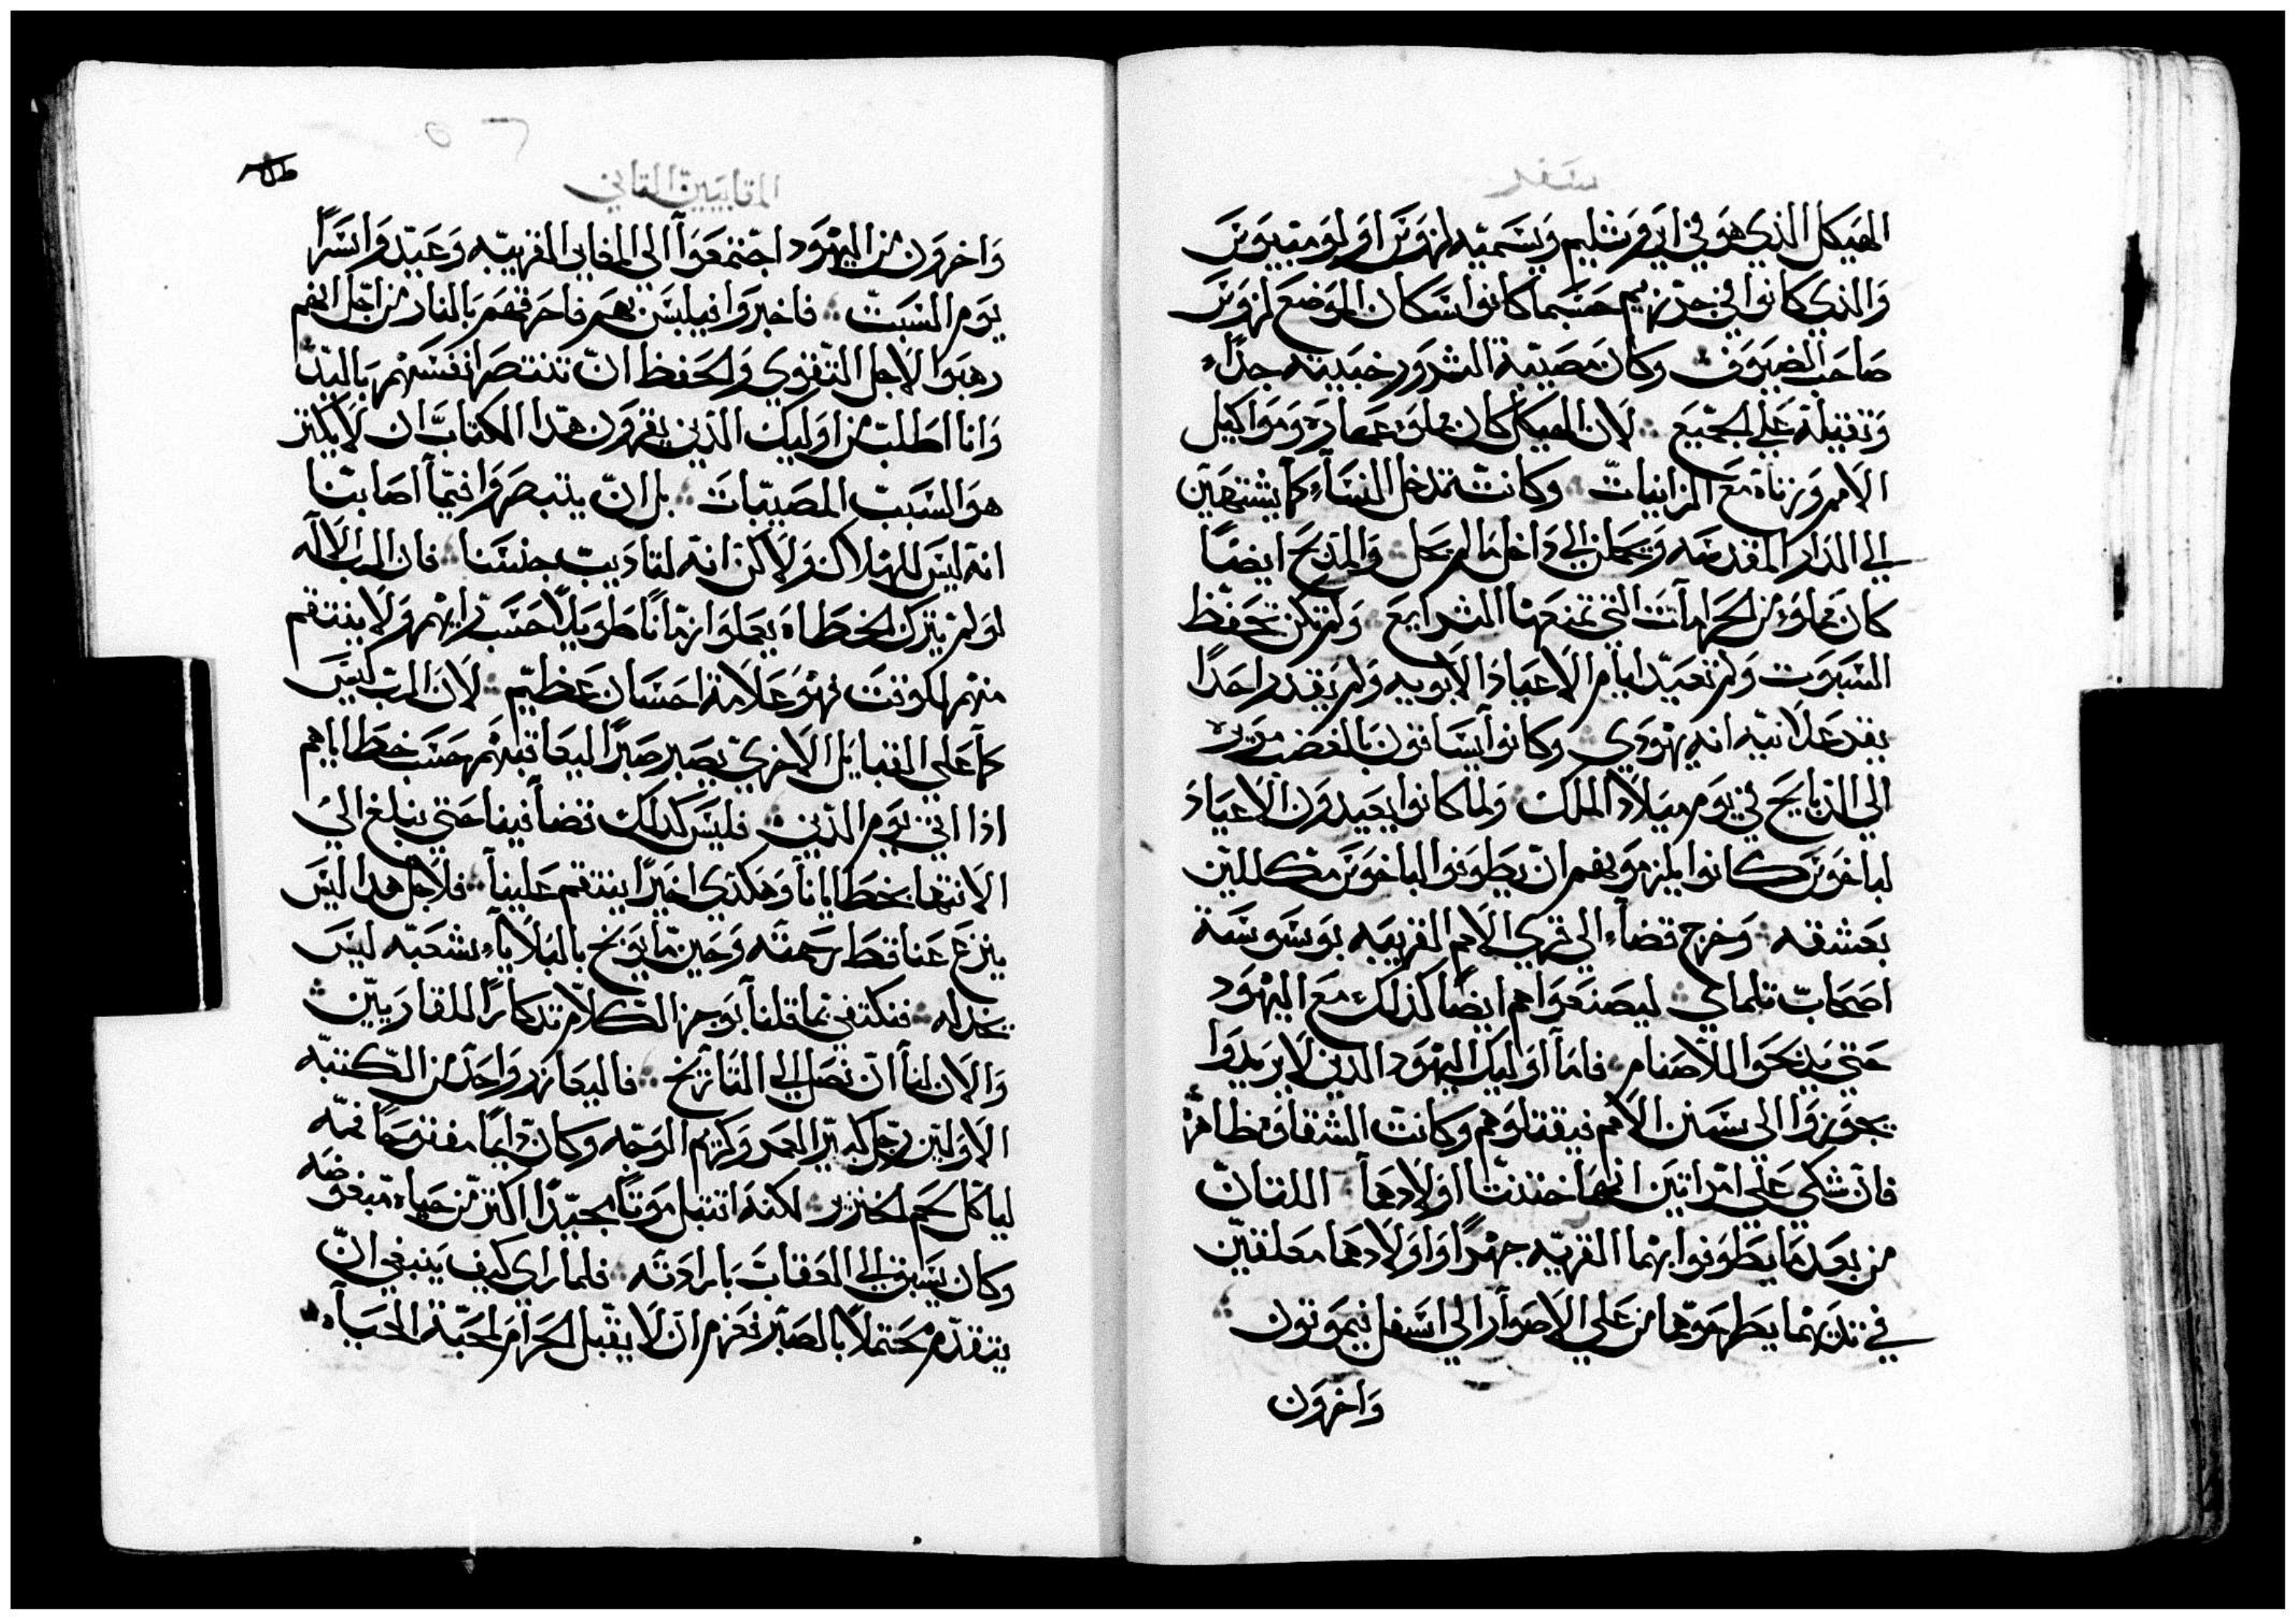 سفر
الهيكل الذي هو في ايروشليم ويسميه لزوس اولومبيوس
والذي كانوا في جرزيم حسبما كانوا سكان الموضع لزوس
صاحب الضيوف وكان مصيبة الشرور خبيثه جدًا
وثقيلة علي الجميع لان الهيكل كان مملوء عهاره ومواكيل
الامم وزناة مع الزانيات وكانت تدخل النساء كما يشتهين
الي الدار المقدسه ويحملن الي داخل ما لم يحل والمدبح ايضًا
كان مملوء من الحرامات التي تمنعها الشرايع ولم تكن تحفظ
السبوت ولم تعيد ايام الاعياد الابويه ولم يقدر احدًا
يقر علانيه انه يهودي وكانوا يساقون بالغضب
الي الذبايح في يوم ميلاد الملك ولما كانوا يعيدون الاعياد
لباخوس كانوا يلزموهم ان يطوفوا لباخوس مكللين
بعشقه وخرج قضاء الي قري الامم القريبه بوسوسة
اصحاب تلماي ليصنعوا هم ايضًا كذلك مع اليهود
حتي يدبحوا للاصنام فاما اوليك اليهود الدين لا يريدوا
يجوزوا الي سنن الامم فيقتلوهم وكانت الشقاوه ظاهره
فان شكي علي امراتين انهما ختنتا اولادهما اللتان
من بعد ما يطوفوا بهما القريه جهرًا واولادهما معلقين
في تدييهما يطرحوهما من علي الاصوار الي اسفل فيموتون
واخرون
المقابيين التاني
واخرون من اليهود اجتمعوا الي المغاير القريبه وعيدوا سرًا
يوم السبت فاخبروا فيلبس بهم فاحرقهم بالنار من اجل انهم
رهبوا لاجل التقوي والحفظ ان تنتصر انفسهم باليد
وانا اطلب من اوليك الذين يقرون هدا الكتاب ان لا يكتر
هو السبب المصيبات بل ان يتبصروا فيما اصابتنا
انه ليس للهلاك ولاكن انه لتاديب جنسنا فان الرب الاله
لو لم يترك الخطاه يعملوا زمانًا طويلًا حسب رايهم ولا ينتقم
منهم لكوقت فهو علامة احسان عظيم لان الرب ليس
كما علي القبايل الاخري يصبر صبرًا ليعاقبهم حسب خطاياهم
ادا اتي يوم الدين فليس كدلك قضا فينا حتي يبلغ الي
الانتها بخطايانا وهكدي اخيرًا ينتقم علينا فلاجل هدا ليس
ينزع عنا قط رحمته وحين ما يوبخ بالبلاياء شعبه ليس
يخدله فنكتفي بما قلنا بوجز الكلام تدكارًا للقاريين
والان لنا ان نصل الي التاريخ فاليعازر واحد من الكتبه
الاولين رجل كبير العمر وكريم الوجه وكان دايمًا مفتوحًا فمه
لياكل لحم الخنزير لكنه اتقبل موتًا مجيدًا اكتر من حياه مبغوضه
وكان يسبق الي العقاب بارادته فلما راي كيف ينبغي ان
يتقدم محتملًا بالصبر فعزم ان لا يقبل الحرام لمحبة الحياه